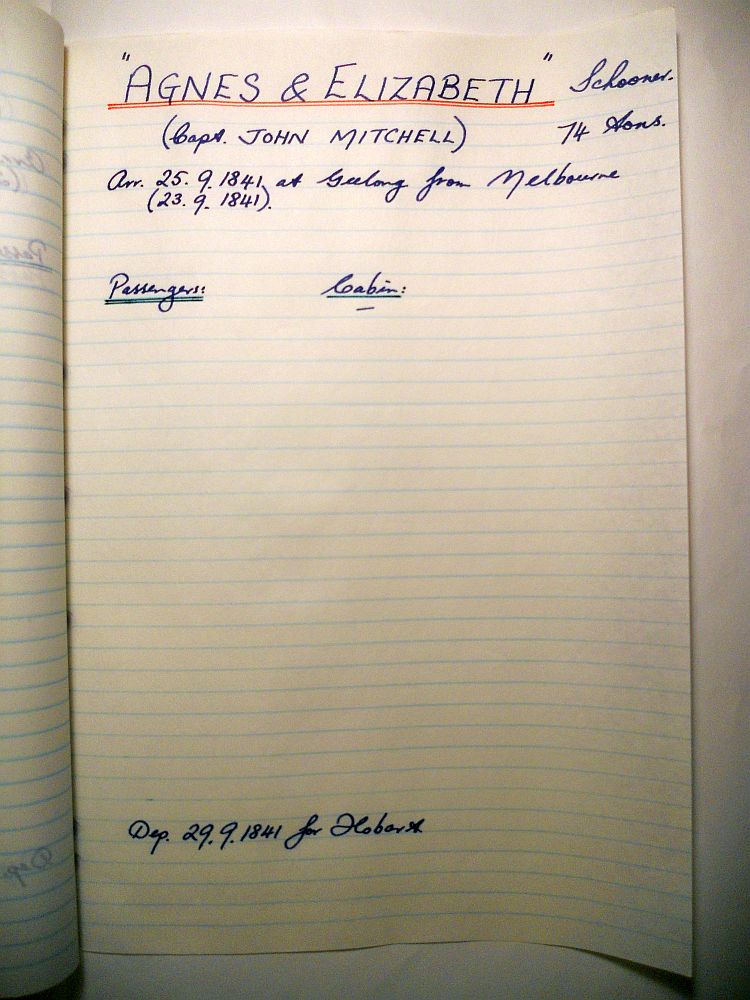 "AGNES & ELIZABETH" Schooner.
(Capt. JOHN MITCHELL) 74 tons.
Arr. 25.9.1841 at Geelong from Melbourne
(23.9.1841).
Passengers: Cabin:
—
Dep. 29.9.1841 for Hobart